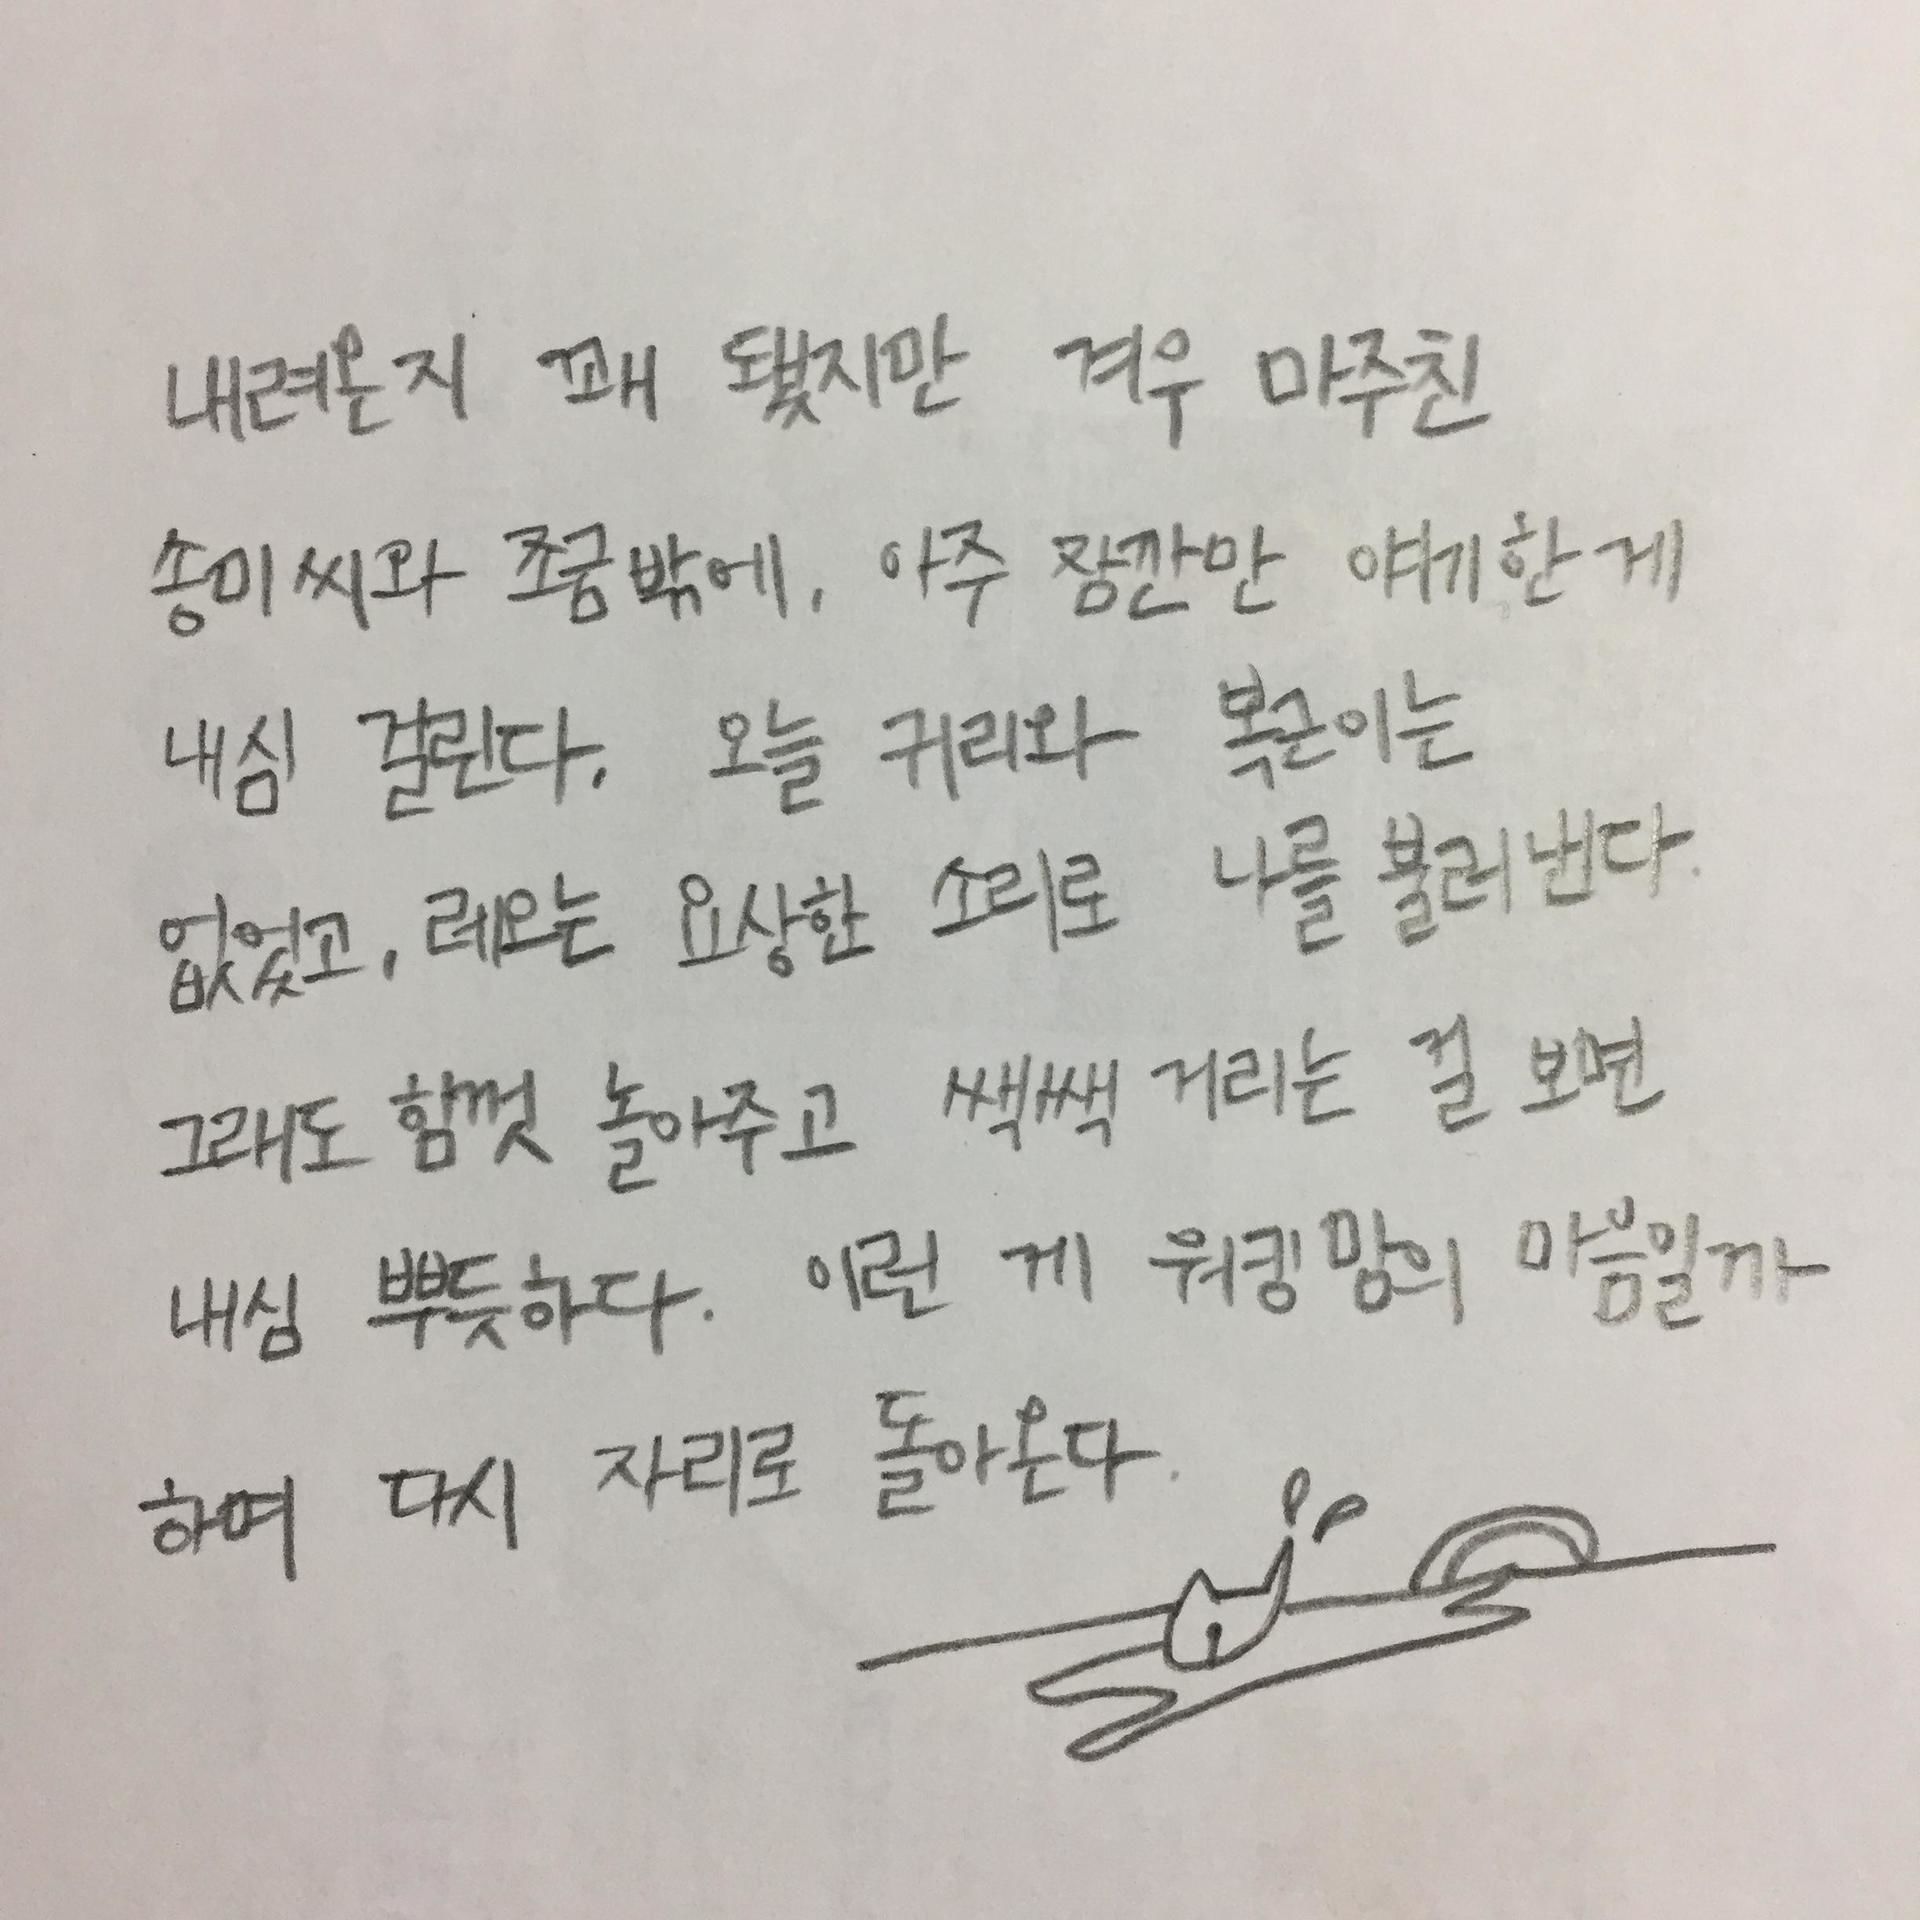 내려온지 꽤 됐지만 겨우 마주친
송미씨와 쪼금밖에, 아주 잠깐만 얘기한 게
내심 걸린다. 오늘 귀리와 복근이는
없었고, 레오는 요상한 소리로 나를 불러낸다.
그래도 힘껏 놀아주고 쌕쌕거리는 걸 보면
내심 뿌듯하다. 이런 게 워킹맘의 마음일까
하며 다시 자리로 돌아온다.